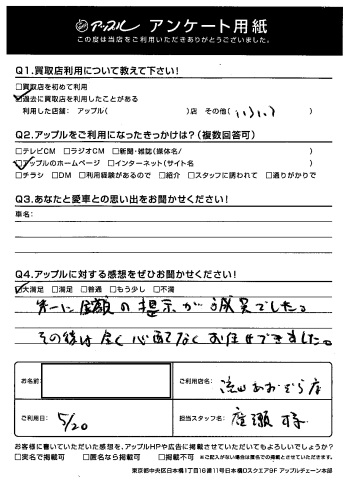 アップル アンケート用紙
この度は当店をご利用いただきありがとうございました。
Q1.買取店利用について教えて下さい!
□買取店を初めて利用
☑過去に買取店を利用したことがある
利用した店舗:アップル( )店 その他( いろいろ )
Q2.アップルをご利用になったきっかけは?(複数回答可)
□テレビCM □ラジオCM □新聞・雑誌(媒体名/ )
☑アップルのホームページ □インターネット(サイト名 )
□チラシ □DM □利用経験があるので □紹介 □スタッフに誘われて □通りがかりで
Q3.あなたと愛車との思い出をお聞かせください!
車名:
Q4.アップルに対する感想をぜひお聞かせください!
☑大満足 □満足 □普通 □もう少し □不満
第一に金額の提示が誠実でした。
その後は全く心配なくお任せできました。
お名前
ご利用店名: 流山おおぞら店
ご利用日: 5/20
担当スタッフ名: 廣瀬 様
お客様に書いていただいた感想を、アップルHPや広告に掲載させていただいてもよろしいでしょうか?
□実名で掲載可 □匿名なら掲載可 □掲載不可 ※ご記入がない場合は匿名での掲載とさせていただきます。
東京都中央区日本橋1丁目16番11号日本橋Dスクエア9F アップルチェーン本部